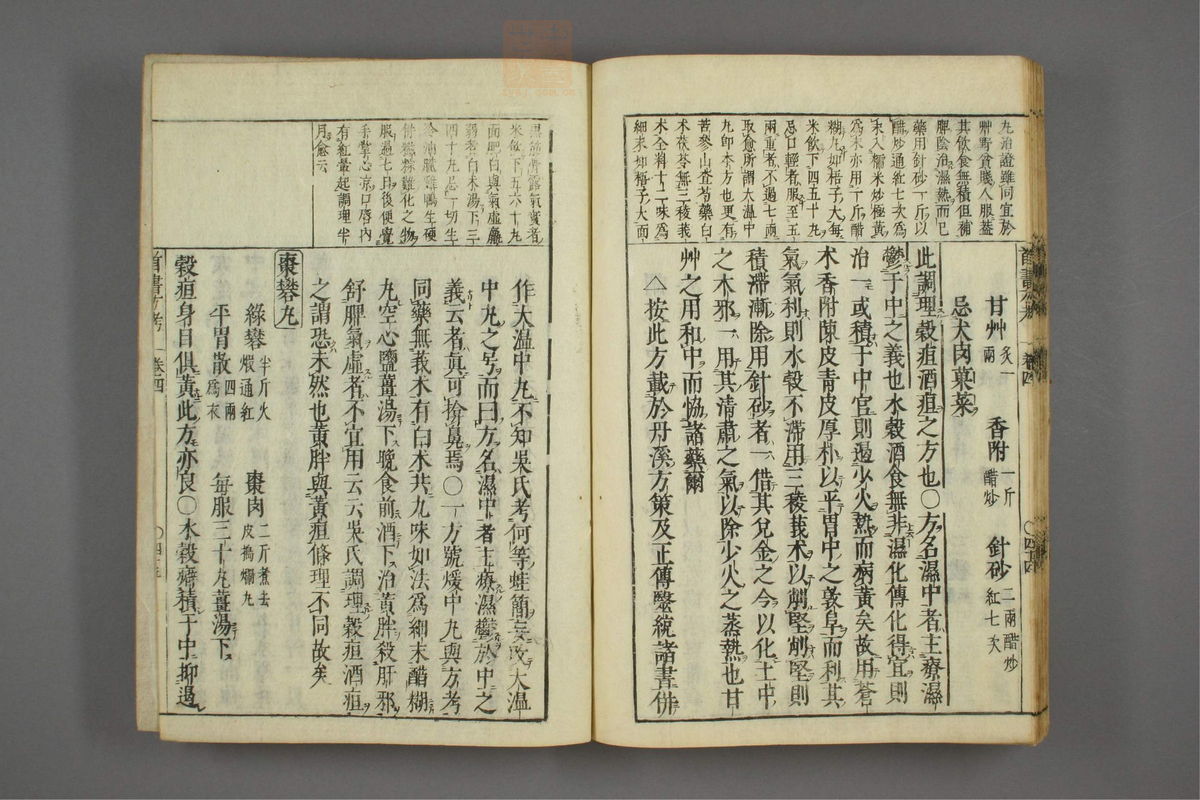 丸治證雖同宜於
艸野貧賤人服蓋
其飲食無積但補
脾陰治濕熱而已
藥用針砂一斤以
醋炒通紅七次爲
末入糯米炒極黃
爲末亦用一斤醋
糊丸如梧子大每
米飲下四五十丸
忌口輕者服至五
兩重者不過七兩
取愈所謂大溫中
丸卽本方也更有
苦參山查芍藥白
术茯苓無三稜莪
术全料十二味爲
細末如梧子大面
甘艸 炙一兩 香附 一斤醋炒 針砂 二兩醋炒紅七次
忌犬肉菓菜
此調理穀疸酒疸之方也○方名濕中者主療濕
鬱于中之義也水穀酒食無非濕化傳化得宜則
治一或積于中宮則遏少火熱而病黃矣故用蒼
术香附陳皮青皮厚朴以平胃中之敦阜而利其
氣氣利則水穀不滯用三稜莪术以削堅削堅則
積滯漸除用針砂者一借其兌金之令以化土中
之木邪一用其清肅之氣以除少火之蒸熱也甘
艸之用和中而恊諸藥爾
△按此方載於丹溪方策及正傳毉統諸書併
首書方考 卷四 ○四十四
黑筋骨露氣實者
米飲下五六十丸
面肥白與氣虛羸
弱者白术湯下三
四十丸忌一切生
冷油膩雞鴨生硬
骨糍粽難化之物
服過七日後便覺
手掌心凉口唇內
有紅暈起調理半
月愈云
作大溫中丸不知吳氏考何等蛙簡妄改大溫
中丸之号而曰方名濕中者主療濕鬱於中之
義云者眞可揜鼻焉○一方號煖中丸與方考
同藥無莪术有白术共九味如法爲細末醋糊
丸空心鹽薑湯下晚食前酒下治黃胖殺肝邪
舒脾氣虛者不宜用云云吳氏調理穀疸酒疸
之謂恐未然也黃胖與黃疸條理不同故矣
棗礬丸
綠礬 半斤火煅通紅 棗肉 二斤煮去皮搗爛丸
平胃散 四兩爲衣 每服三十丸薑湯下
穀疸身目俱黃此方亦良○水穀癖積于中抑遏
首書方考 卷四